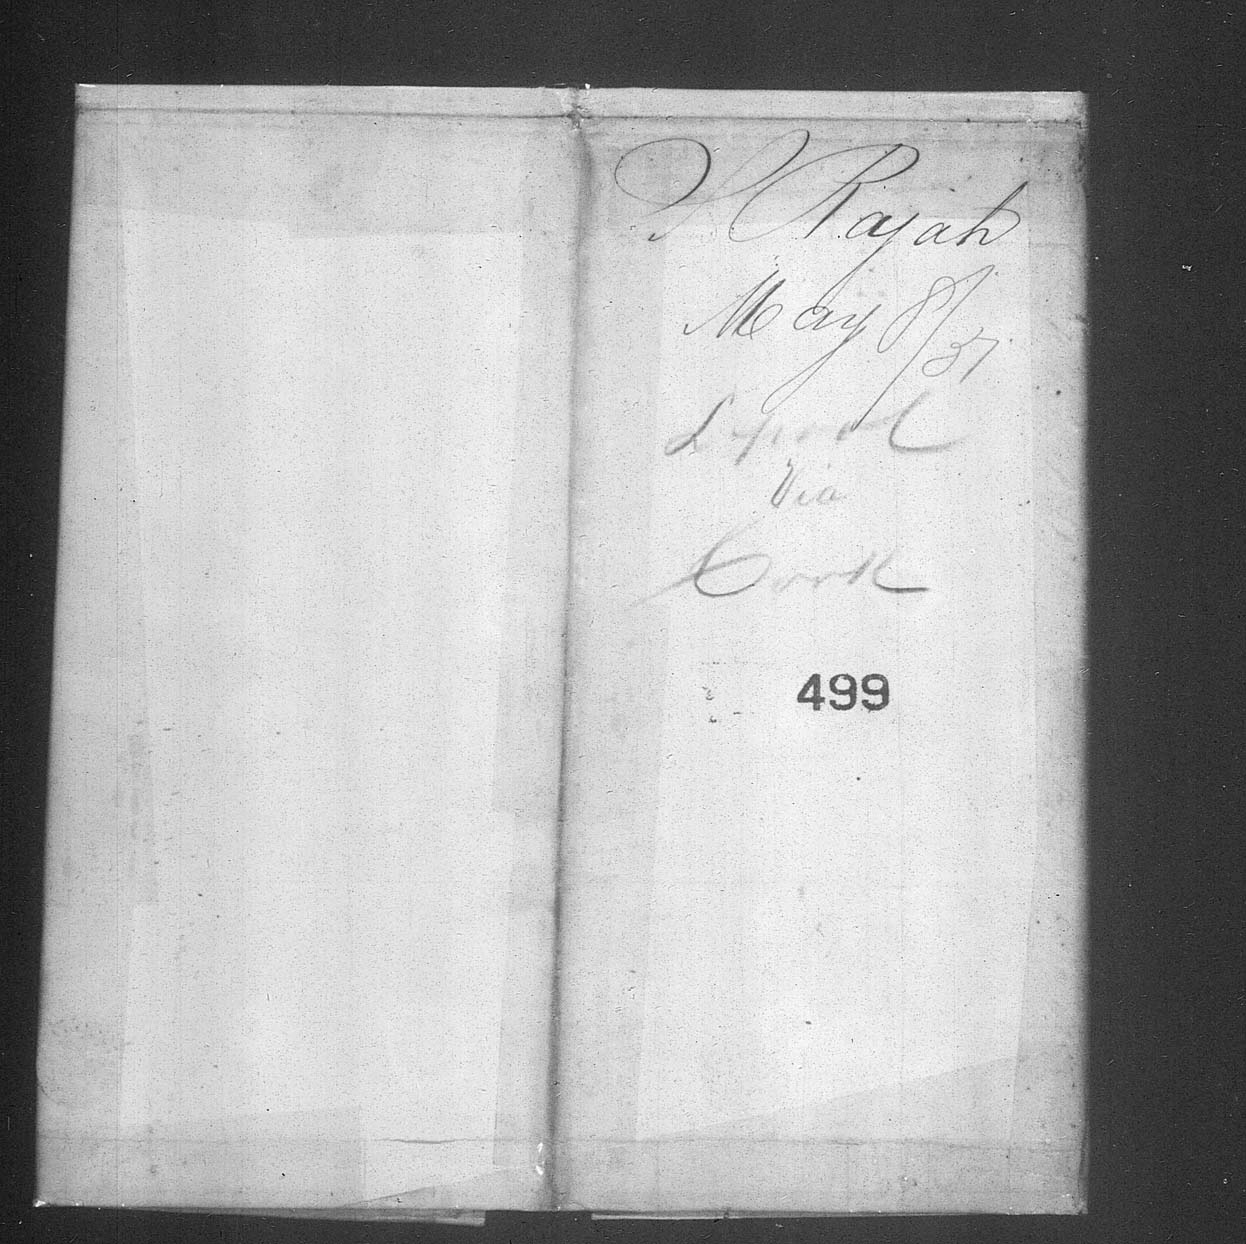 S Rajah
May 8/37
Lpool
Via
Cork
499